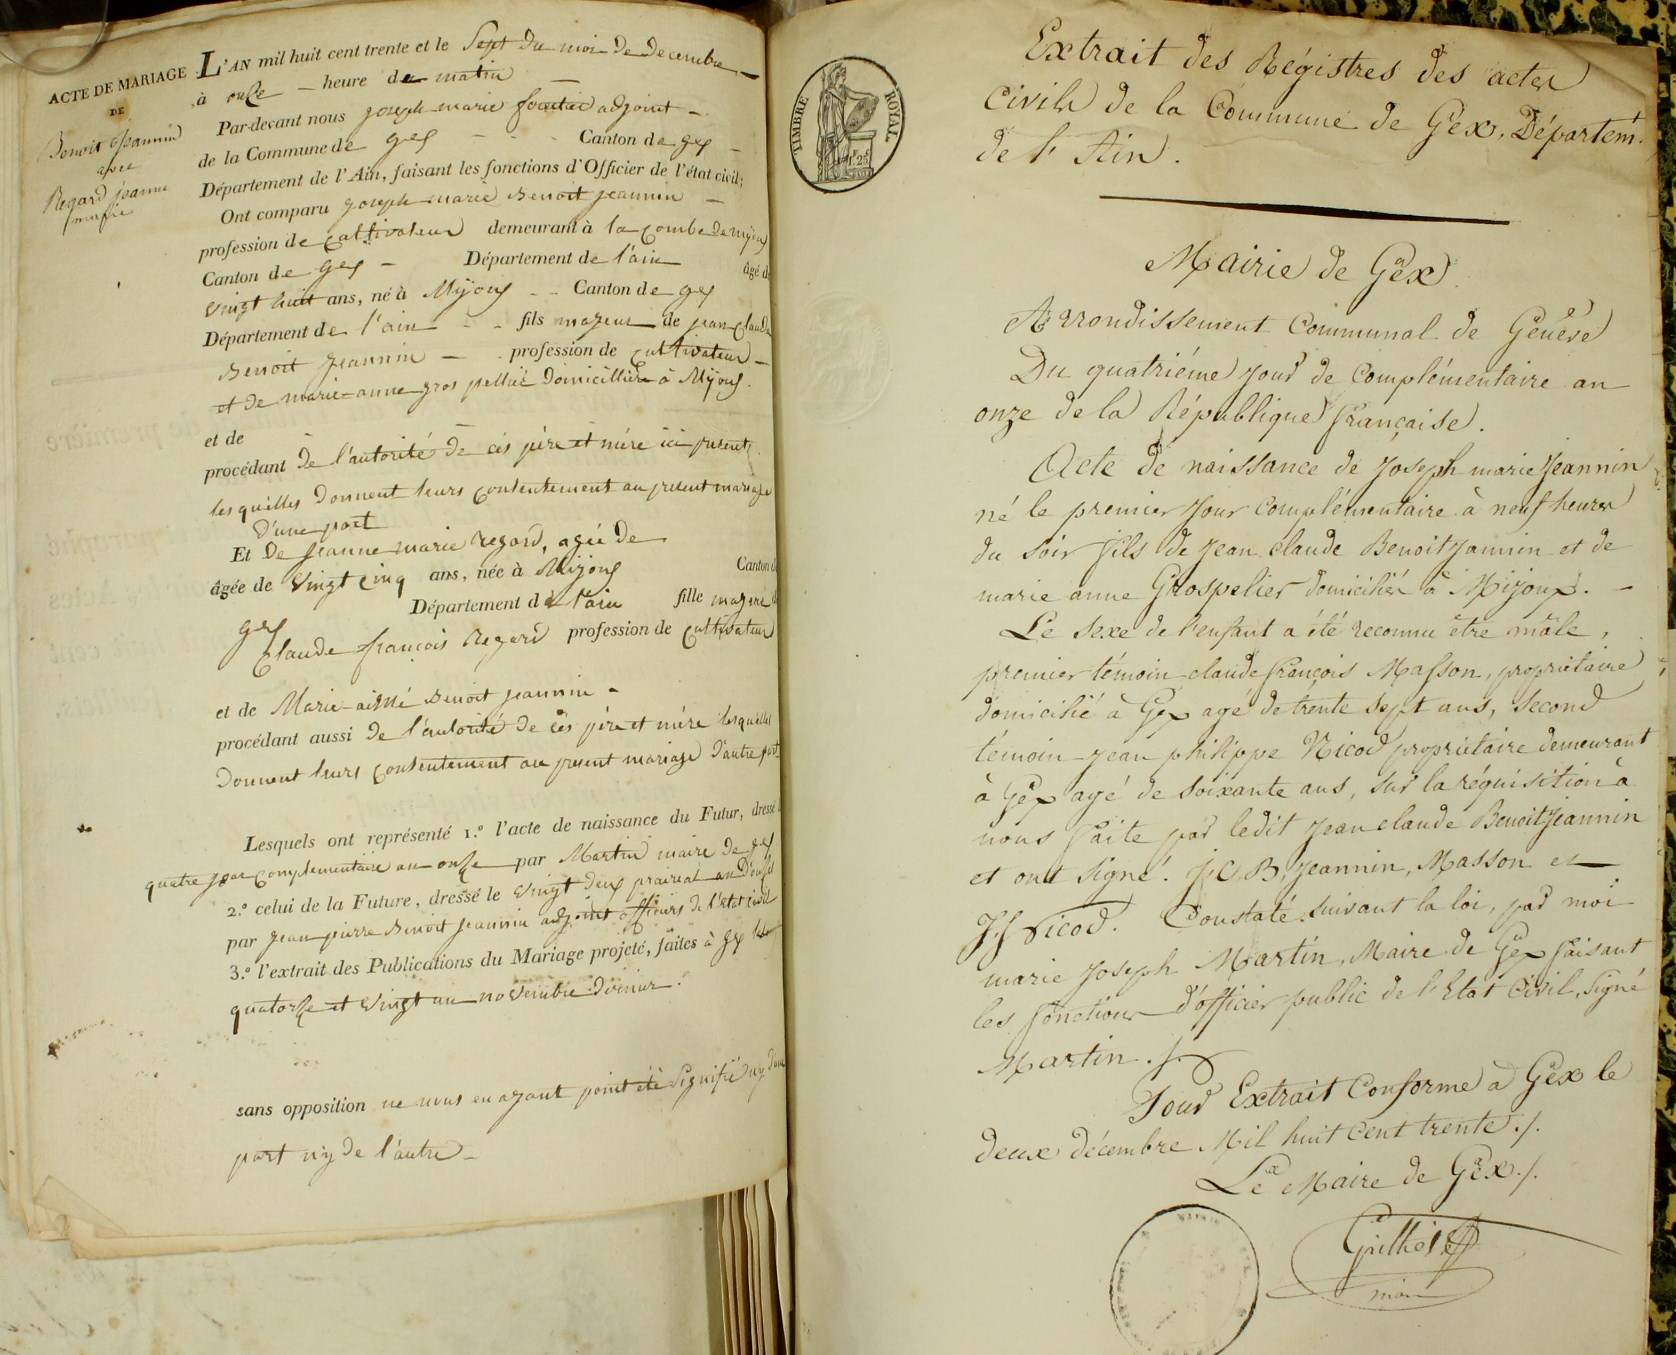 ACTE DE MARIAGE
DE
Benoit Jeannin
avec
Regard jeanne
marie
L'AN mil huit cent trente et le Sept du mois de decembre
à onze heure de matin
Par-devant nous joseph marie adjoint
de la Commune de gex Canton de gex
Département de l'Ain, faisant les fonctions d'Officier de l'état civil;
Ont comparu joseph marie Benoit jeannin
profession de cultivateur demeurant à la combe de mijoux
Canton de gex Département de l'ain âgé de
vingt huit ans, né à Mijoux Canton de gex
Département de l'ain fils majeur de jean claude
Benoit jeannin profession de cultivateur
et de marie anne gros pellier domicilliés à Mijoux.
et de
procédant de l'autorité de ces père et mère ici présents
lesquelles donnent leurs consentement au présent mariage
d'une part
Et de jeanne marie regard, agée de
âgée de vingt cinq ans, née à Mijoux Canton de
gex Département de l'ain fille majeure de
Claude françois regard profession de cultivateur
et de Marie aimé Benoit jeannin
procédant aussi de l'autorité de ces père et mère lesquelles
donnent leurs consentement au present mariage d'autre part
Lesquels ont représenté 1.º l'acte de naissance du Futur, dressé
quatre jour complementaire an onze par Martin maire de gex
2.º celui de la Future, dressé le vingt deux prairial an
par jean pierre Benoit jeannin adjoint officiers de l'etat civil
3.º l'extrait des Publications du Mariage projeté, faites à gex les
quatorze et vingt un novembre dernier.
sans opposition ne nous en ayant point été signifié ny d'une
part ny de l'autre
TIMBRE ROYAL
Extrait des Régistres des actes
civils de la Commune de Gex, Départem.t
de l'Ain.
Mairie de Gex
Arrondissement Communal de Genève
Du quatriéme jour de Complémentaire an
onze de la République française.
Acte de naissance de Joseph marie Jeannin
né le premier jour complémentaire à neuf heures
du soir fils de jean claude Benoit Jannin et de
marie anne Grospelier domiciliés à Mijoux.
Le sexe de l'enfant a été reconnu être mâle,
premier témoin claude françois Masson, propriétaire
domicilié à Gex age de trente sept ans, second
témoin jean philippe Nicod propriétaire demeurant
à Gex agé de soixante ans, sur la réquisition à
nous faite par ledit jean claude Benoit Jeannin
et ont signé. J C B. Jeannin, Masson et
J. p Nicod. Constaté suivant la loi, par moi
marie Joseph Martin, Maire de Gex faisant
les fonctions d'officier public de l'Etat Civil, Signé
Martin ./.
Pour Extrait Conforme à Gex le
deux décembre Mil huit cent trente ./.
Le Maire de Gex ./.